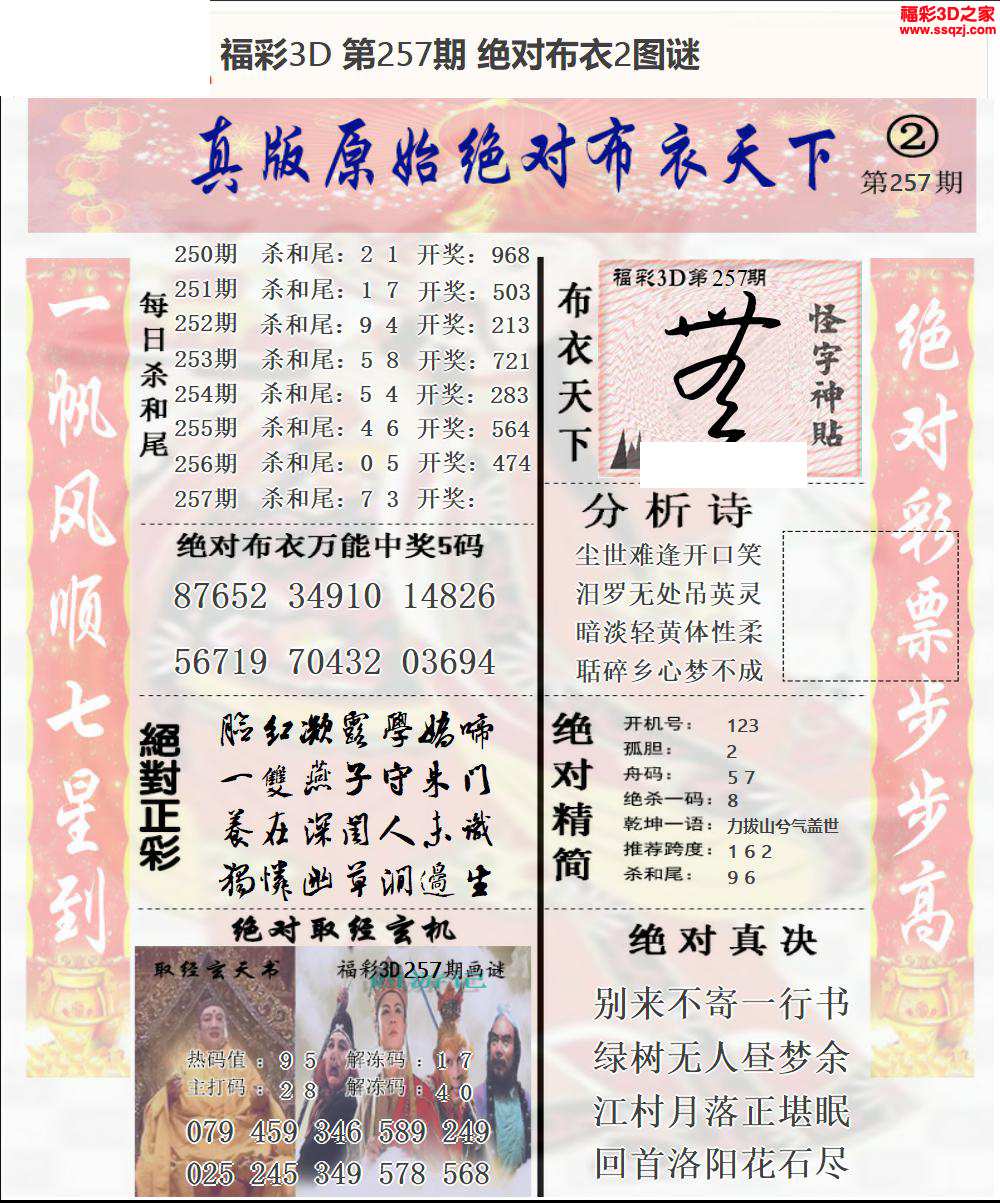 福彩3D之家
www.ssqzj.com
福彩3D 第257期 绝对布衣2图谜
真版原始绝对布衣天下
②
第257期
一帆风顺七星到
每日杀和尾
250期 杀和尾：2 1 开奖：968
251期 杀和尾：1 7 开奖：503
252期 杀和尾：9 4 开奖：213
253期 杀和尾：5 8 开奖：721
254期 杀和尾：5 4 开奖：283
255期 杀和尾：4 6 开奖：564
256期 杀和尾：0 5 开奖：474
257期 杀和尾：7 3 开奖：
绝对布衣万能中奖5码
87652 34910 14826
56719 70432 03694
絕對正彩
臉紅凝露學嬌啼
一雙燕子守朱门
養在深闺人未識
獨憐幽草澗邊生
绝对取经玄机
取经玄天书
福彩3D257期画谜
热码值：9 5 解冻码：1 7
主打码：2 8 解冻码：4 0
079 459 346 589 249
025 245 349 578 568
布衣天下
福彩3D第257期
怪字神貼
分析诗
尘世难逢开口笑
汨罗无处吊英灵
暗淡轻黄体性柔
聒碎乡心梦不成
绝对精简
开机号：123
孤胆：2
舟码：5 7
绝杀一码：8
乾坤一语：力拔山兮气盖世
推荐跨度：1 6 2
杀和尾：9 6
绝对真决
别来不寄一行书
绿树无人昼梦余
江村月落正堪眠
回首洛阳花石尽
绝对彩票步步高